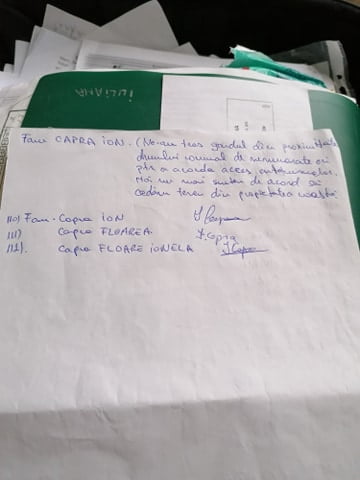 IULIANA
Fam CAPRA ION. (Ne-am tras gardul din proximitatea
drumului comunal de nenumarate ori
ptr a acorda acces autoturismelor.
Noi nu mai suntem de acord sa
cedam teren din proprietatea noastra
110) Fam. Capra ION
111) Capra FLOAREA. F. Capra
112). Capra FLOARE IONELA I Capra